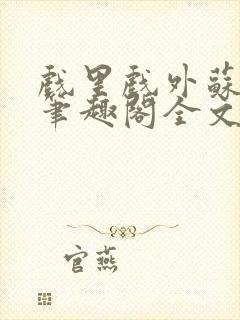 戲里戲外蘇
筆趣閣全文
官燕